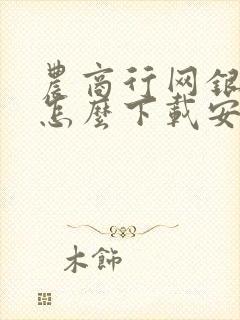 農商行网銀
怎麼下載安
木飾